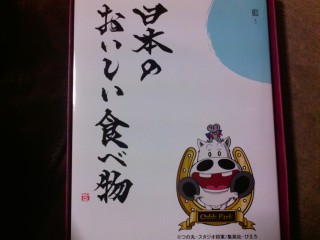 藍
日本の
おいしい食べ物
Odds Park
©つの丸・スタジオ将軍/集英社・ぴえろ